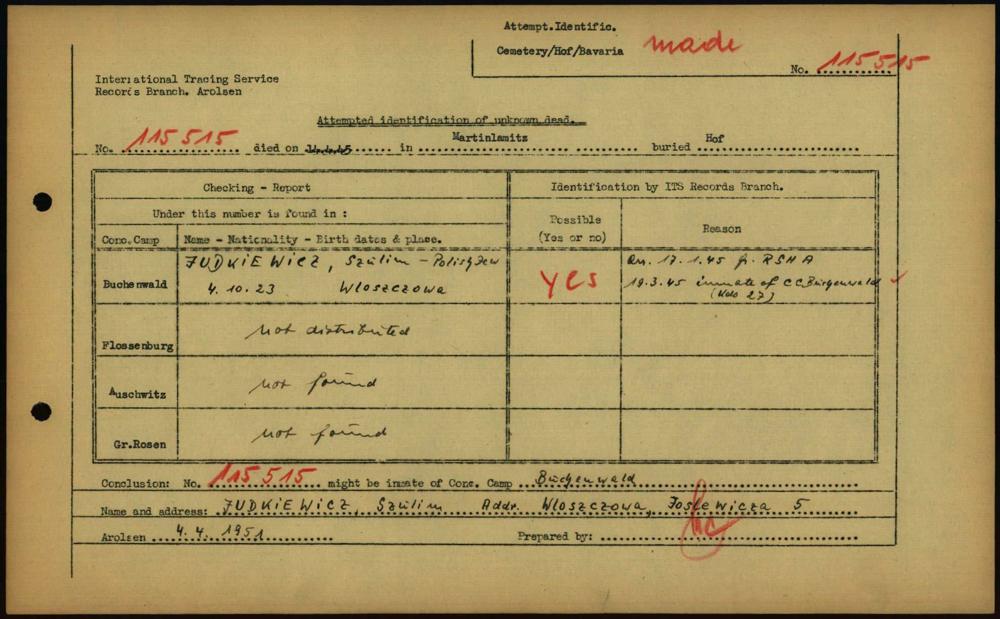 Attempt.Identific.
Cemetery/Hof/Bavaria made
No. 115515
International Tracing Service
Records Branch. Arolsen
Attempted identification of unknown dead.
No. 115515 died on 14.4.45 in Martinlamitz buried Hof
Checking - Report
Identification by ITS Records Branch.
Under this number is found in :
Possible
(Yes or no)
Reason
Conc.Camp
Name - Nationality - Birth dates & place.
Buchenwald
JUDKIEWICZ, Szulim - Polish Jew
4.10.23 Wloszczowa
yes
arr. 17.1.45 fr. RSHA
19.3.45 inmate of CC Buchenwald
(Kdo 27)
Flossenburg
not distributed
Auschwitz
not found
Gr.Rosen
not found
Conclusion: No. 115515 might be inmate of Conc. Camp Buchenwald
Name and address: JUDKIEWICZ, Szulim Addr. Wloszczowa, Joslewicza 5
Arolsen 4.4.1951 Prepared by: